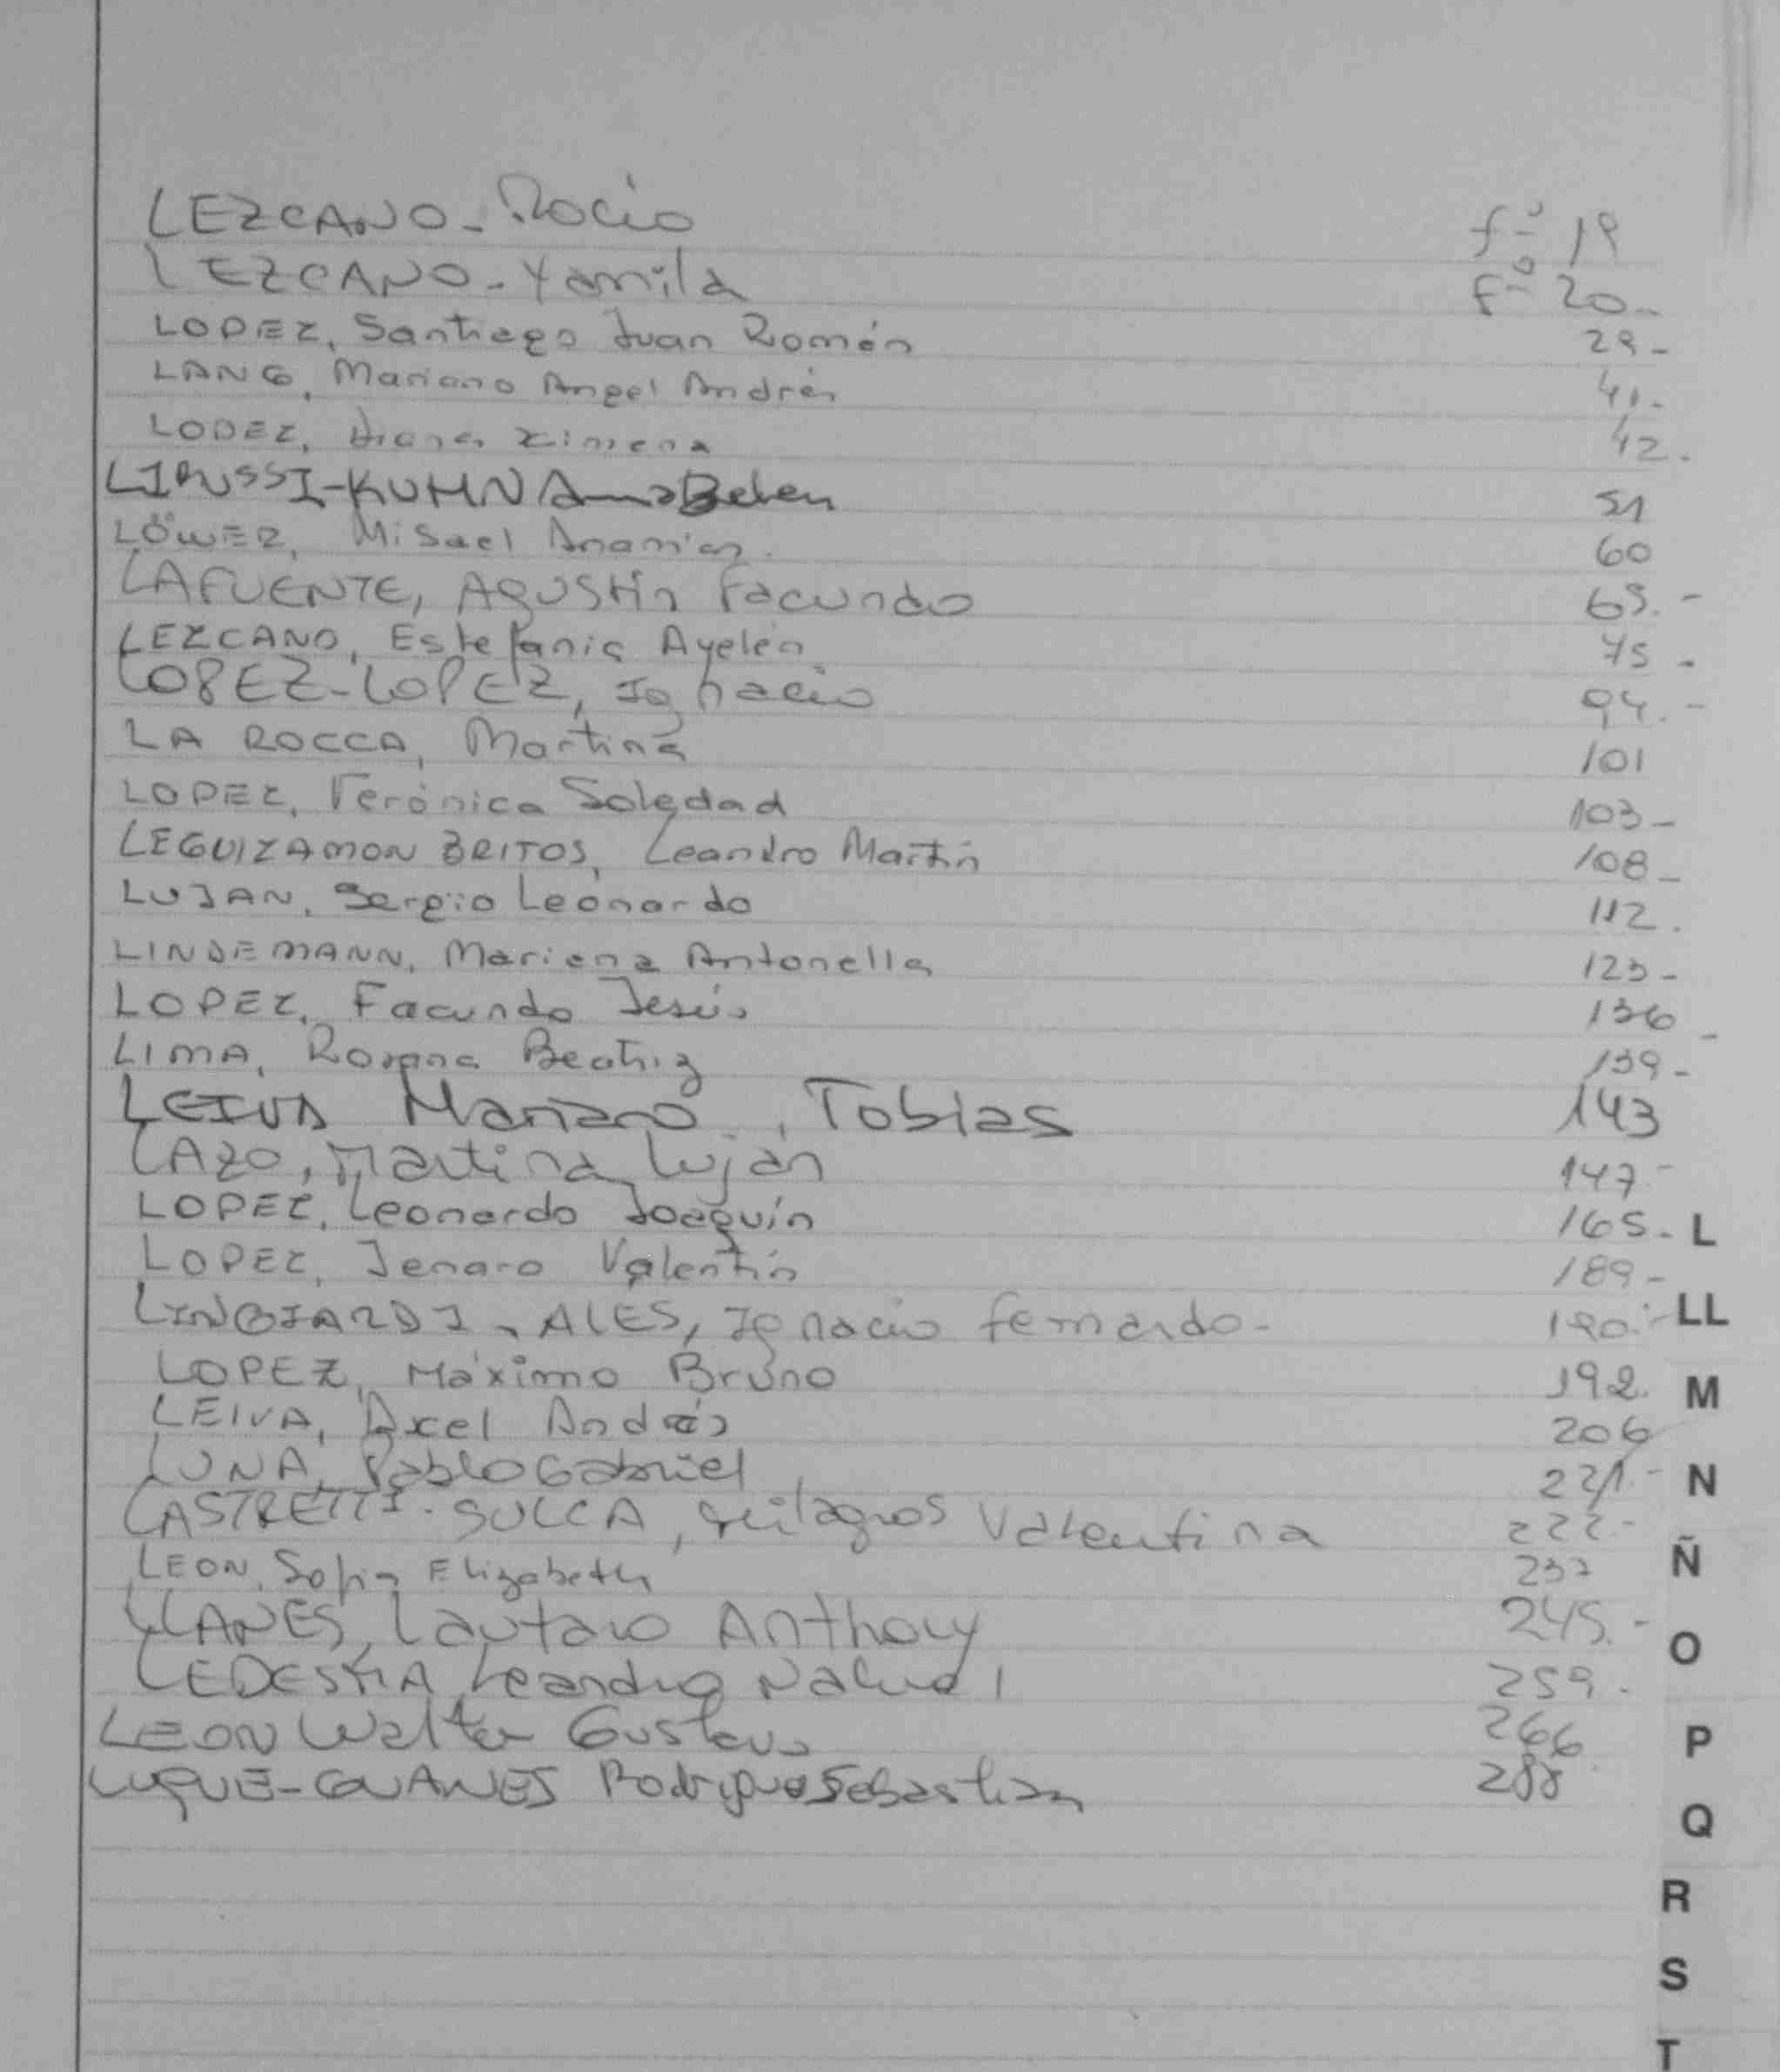 LEZCANO - Rocio fº 19
LEZCANO - Yamila Fº 20-
LOPEZ, Santiago Juan Román 29-
LANG, Mariano Angel Andrés 41-
LOPEZ, Diana Ximena 42.
LIRUSSI-KUHN Ana Belen 51
LÖWER, Misael Ananías. 60
LAFUENTE, AGUStín Facundo 65.-
LEZCANO, Estefania Ayelén 75-
LOPEZ-LOPEZ, Ignacio 94.-
LA ROCCA, Martina 101
LOPEZ, Verónica Soledad 103-
LEGUIZAMON BRITOS, Leandro Martín 108-
LUJAN, Sergio Leonardo 112.
LINDEMANN, Mariana Antonella 123-
LOPEZ, Facundo Jesús 136-
LIMA, Rosana Beatriz 139-
LEIVA Mariano, Tobias 143
LAZO, Martina Luján 147-
LOPEZ, Leonardo Joaquín 165- L
LOPEZ, Jenaro Valentín 189-
LINGIARDI - ALES, Ignacio fernando- 190.- LL
LOPEZ, Máximo Bruno 192. M
LEIVA, Axel Andrés 206
LUNA, Pablo Gabriel 221.- N
LASTRETTI-SULCA, Milagros Valentina 222-
LEON, Sofia Elizabeth Ñ
LLANES, Lautaro Anthony 245.-
O
LEDESMA, Leandro Nahuel 259.
LEON Walter Gustavo 266 P
LUQUE-GUANES Rodrigo Sebastian 288
Q
R
S
T